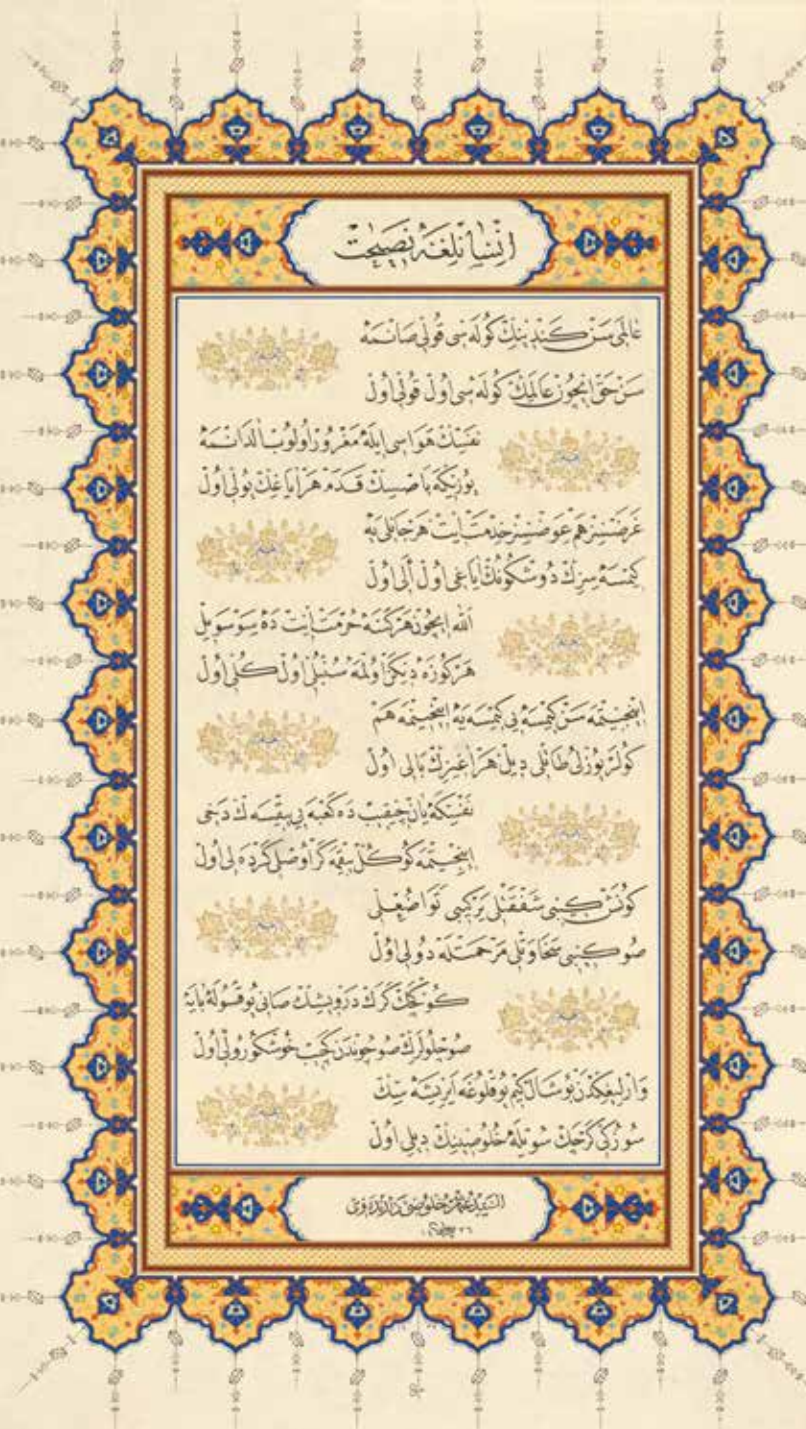 انسانلغه نصيحت
عالمى سن كندينك كوله سى قولى صانمه
سن حق ايچون عالمك كوله سى اول قولى اول
نفسك هواسى ايله مغرور اولوب الدانمه
يوزيكه باصسك قدم هر اياغك يولى اول
غرضسز هم عوضسز خدمت ايت هر جانلى يه
كيمسه سزك دوشكونك اياغى اول الى اول
الله ايچون هركسه حرمت ايت ده سو سويل
هر كوزه ديكن اولمه سنبلى اول كلى اول
اينجيتمه سن كيمسه يى كيمسه يه اينجيتمه هم
كولر يوزلى طاتلى ديل هر اغيزك بالى اول
نفسكه يان چيقب ده كعبه يى ييقسه ك دخى
اينجيتمه كوكل ييقمه كر اوصلى كر ده لى اول
كونش كبى شفقتلى ير كبى تواضعلى
صو كبى سخاوتلى مرحمتله دولى اول
كوكچك كرك درويشك صانى يوقسوله بايه
صوچلولرك صوچوندن كچب خوشكورولى اول
وارليغكدن بوشال كيم يوقلوغه ايريشه سك
سوزكى كرچك سويله خلوصينك ديلى اول